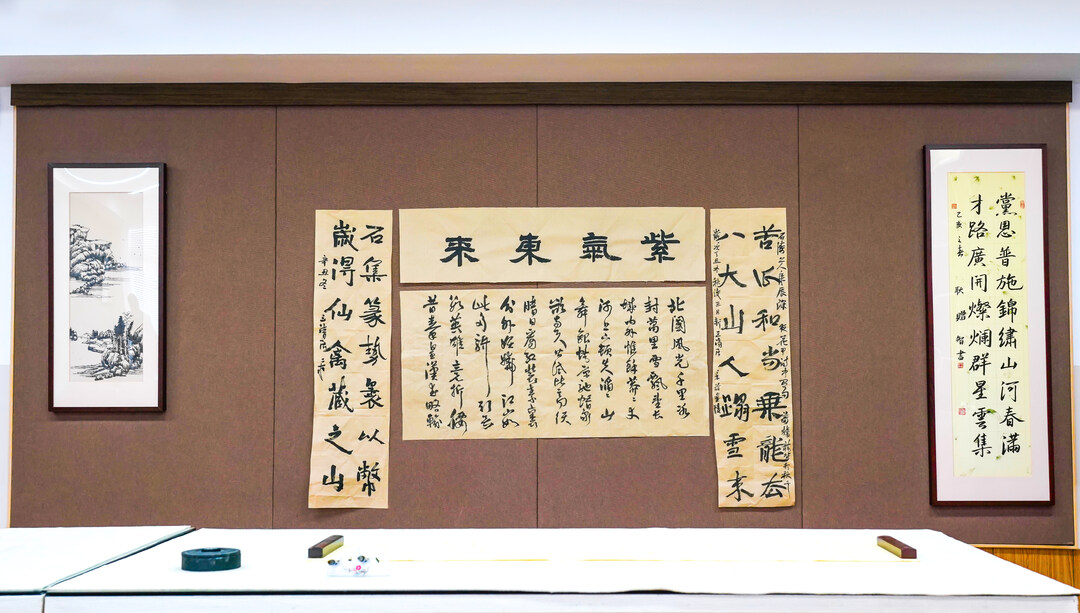 黨恩普施錦繡山河春滿
才路廣開燦爛群星雲集
乙亥之春
苦瓜和尚乘龍去
八大山人蹋雪来
紫氣東来
北國風光千里冰
封萬里雪飄望長
城内外惟餘莽〻大
河上下頓失滔〻山
舞銀蛇原馳蠟象
欲與天公試比高須
晴日看紅裝素裹
分外妖嬈江山如
此多嬌引無
數英雄竞折腰
昔秦皇漢武略輸
石集篆埶裹以幣
歲得仙禽藏之山
辛丑冬